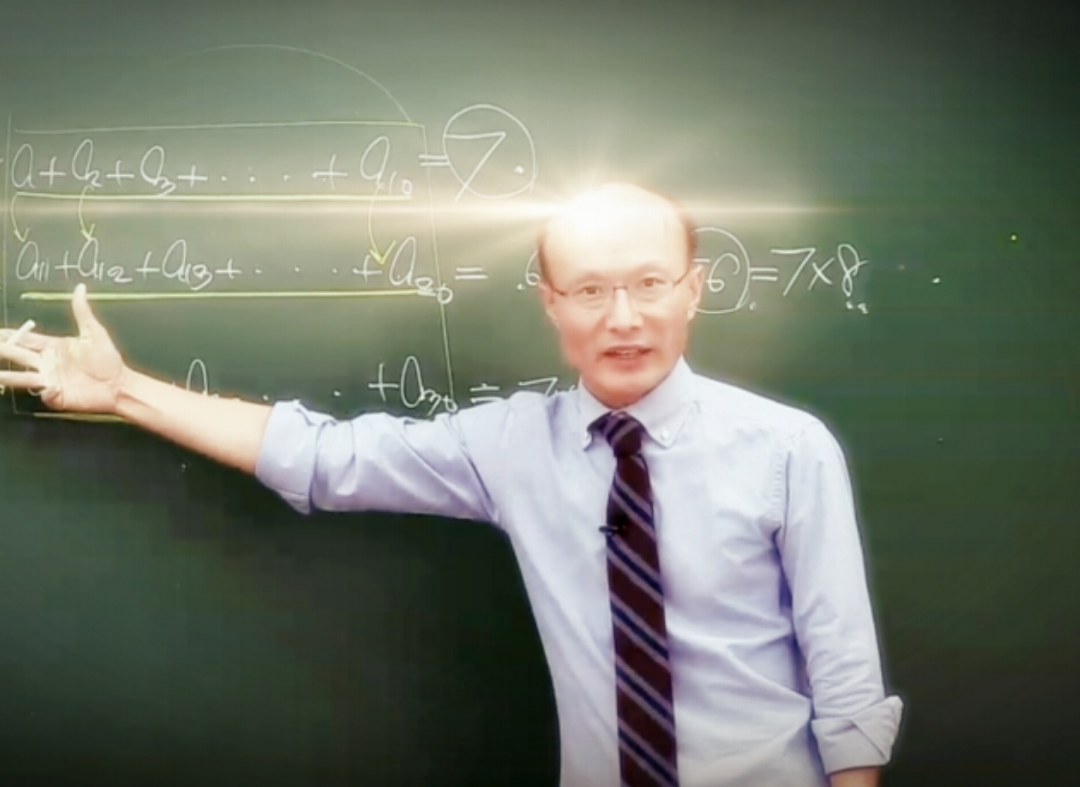 a+a₂+a₃+ · · · · + a₁₀ = 7.
a₁₁+a₁₂+a₁₃+ · · · · +a₂₀ = .6 56 =7×8
+a₃₀ = 7